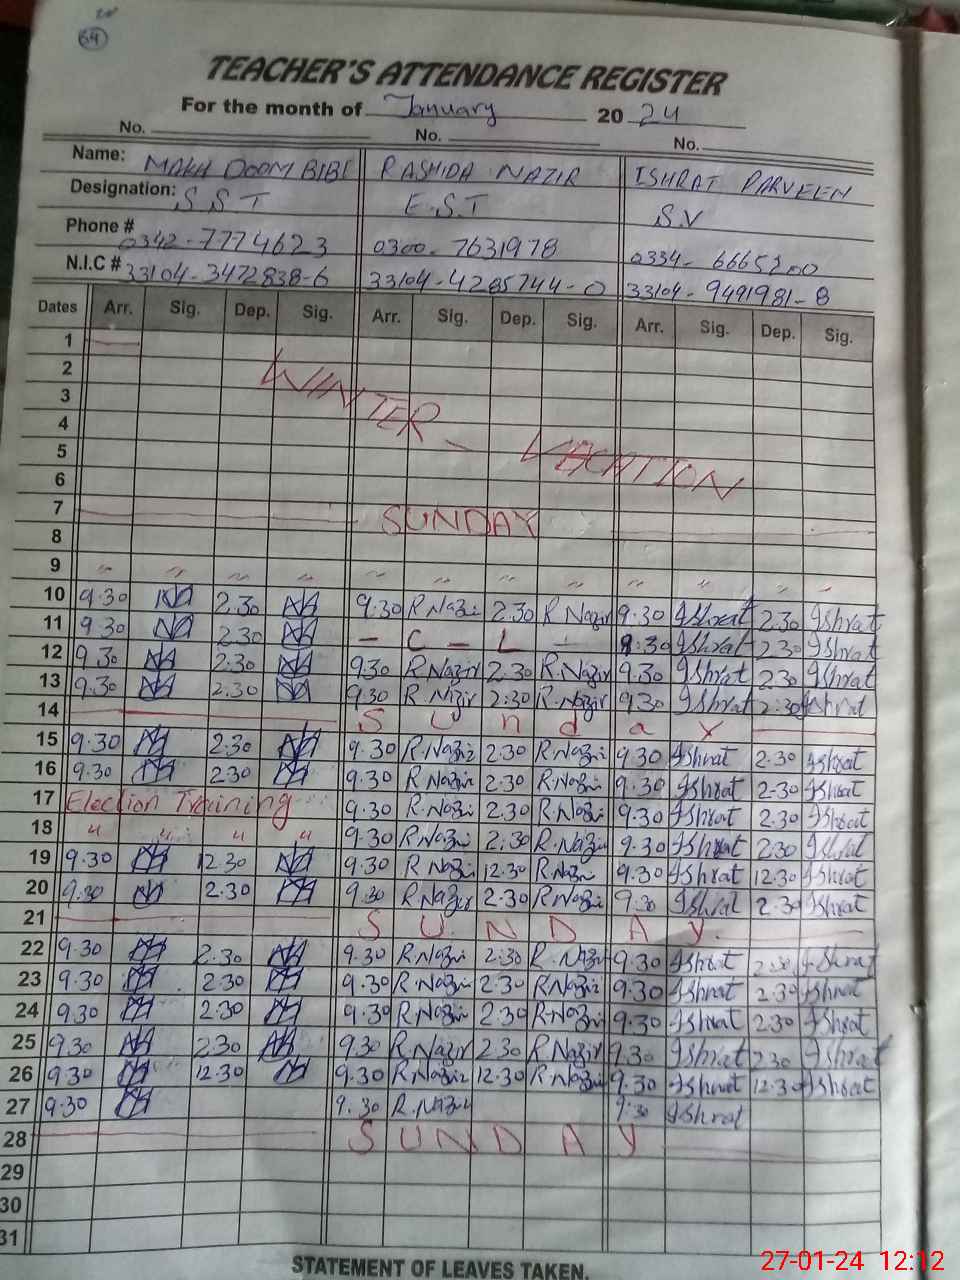 54
TEACHER'S ATTENDANCE REGISTER
For the month of January 2024
No. No. No.
Name: MAKH DOOM BIBI RASHIDA NAZIR ISHRAT PARVEEN
Designation: S.S.T E.S.T S.V
Phone # 0342-7774623 0300-7631978 0334-6665200
N.I.C # 33104-3472838-6 33104-4285744-0 33104-9491981-8
Dates Arr. Sig. Dep. Sig. Arr. Sig. Dep. Sig. Arr. Sig. Dep. Sig.
1
2
3 WINTER - VACATION
4
5
6
7 SUNDAY
8
9 " " " " " " " " " " " "
10 9.30 2.30 9.30 R.Nazir 2.30 R.Nazir 9.30 Ishrat 2.30 Ishrat
11 9.30 2.30 - C - L - 9.30 Ishrat 2.30 Ishrat
12 9.30 2.30 9.30 R.Nazir 2.30 R.Nazir 9.30 Ishrat 2.30 Ishrat
13 9.30 2.30 9.30 R.Nazir 2:30 R.Nazir 9.30 Ishrat 2:30 Ishrat
14 S u n d a y
15 9.30 2.30 9.30 R.Nazir 2.30 R.Nazir 9.30 Ishrat 2.30 Ishrat
16 9.30 2.30 9.30 R.Nazir 2.30 R.Nazir 9.30 Ishrat 2.30 Ishrat
17 Election Training 9.30 R.Nazir 2.30 R.Nazir 9.30 Ishrat 2.30 Ishrat
18 " " " " 9.30 R.Nazir 2:30 R.Nazir 9.30 Ishrat 2.30 Ishrat
19 9.30 12.30 9.30 R.Nazir 12.30 R.Nazir 9.30 Ishrat 12.30 Ishrat
20 9.30 2.30 9.30 R.Nazir 2.30 R.Nazir 9.30 Ishrat 2.30 Ishrat
21 S U N D A Y
22 9.30 2.30 9.30 R.Nazir 2:30 R.Nazir 9.30 Ishrat 2.30 Ishrat
23 9.30 2.30 9.30 R.Nazir 2.30 R.Nazir 9.30 Ishrat 2.30 Ishrat
24 9.30 2.30 9.30 R.Nazir 2.30 R.Nazir 9.30 Ishrat 2.30 Ishrat
25 9.30 2.30 9.30 R.Nazir 2.30 R.Nazir 9.30 Ishrat 2.30 Ishrat
26 9.30 12.30 9.30 R.Nazir 12.30 R.Nazir 9.30 Ishrat 12.30 Ishrat
27 9.30 9.30 R.Nazir 9.30 Ishrat
28 S U N D A Y
29
30
31
STATEMENT OF LEAVES TAKEN.
27-01-24 12:12